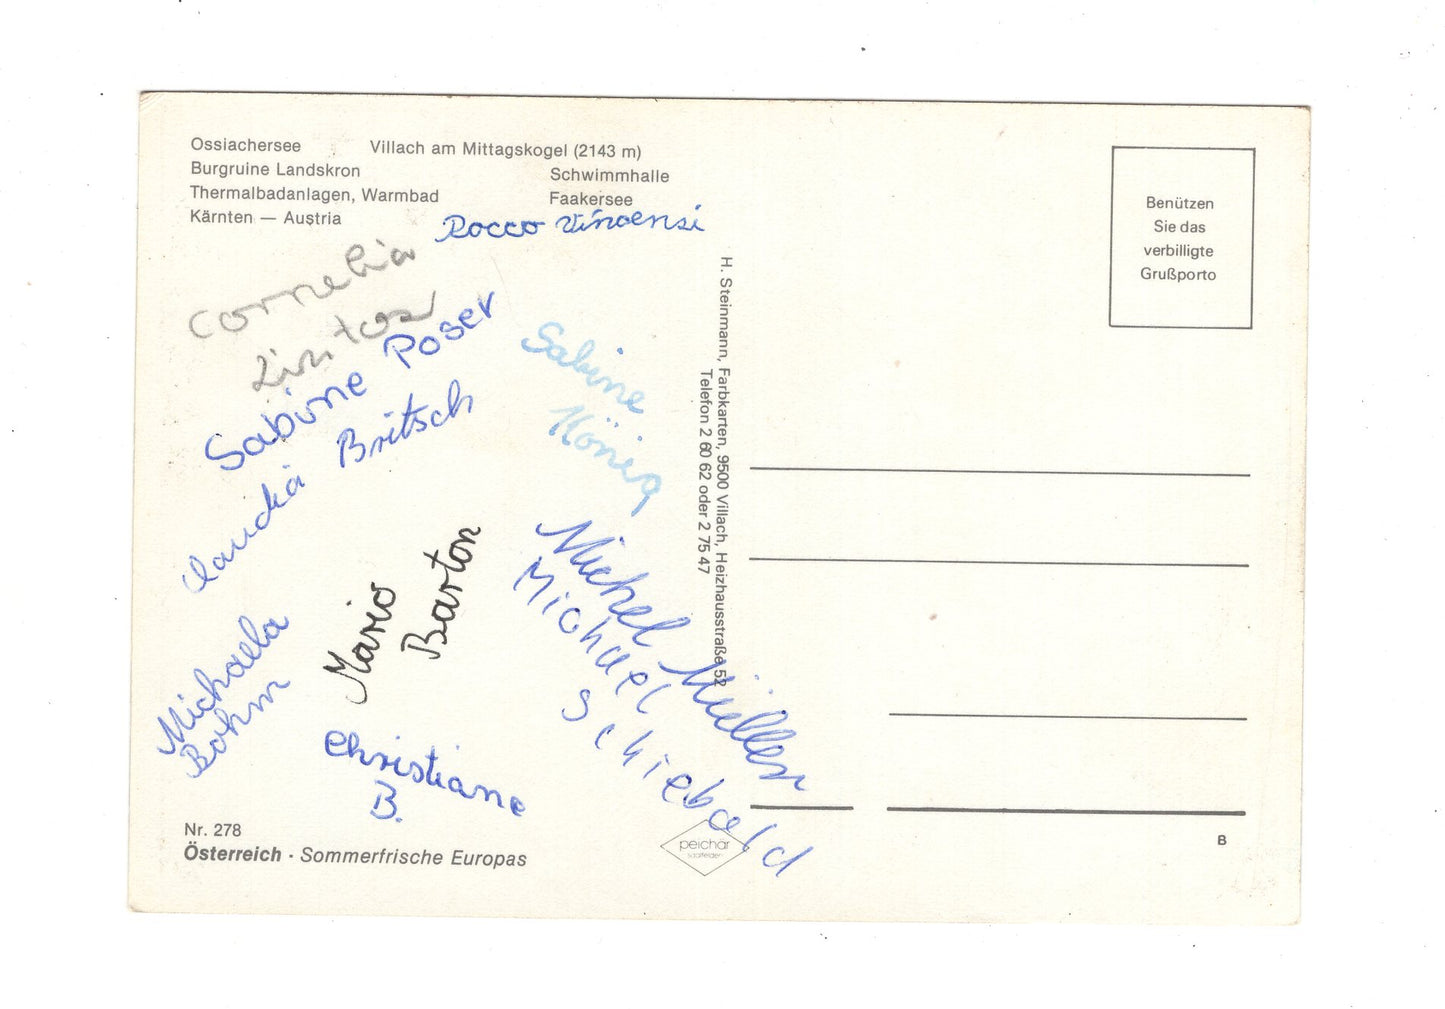 Ossiachersee Villach am Mittagskogel (2143 m)
Burgruine Landskron Schwimmhalle
Thermalbadanlagen, Warmbad Faakersee
Kärnten — Austria
Rocco
Cornelia
Sabine Poser
Claudia Britsch
Sabine
König
Mario
Barton
Michel Müller
Michael
Schiebold
Michaela
Bohm
Christiane
B.
Nr. 278
Österreich · Sommerfrische Europas
H. Steinmann, Farbkarten, 9500 Villach, Heizhausstraße 52
Telefon 2 60 62 oder 2 75 47
peichär
saalfelden
Benützen
Sie das
verbilligte
Grußporto
B